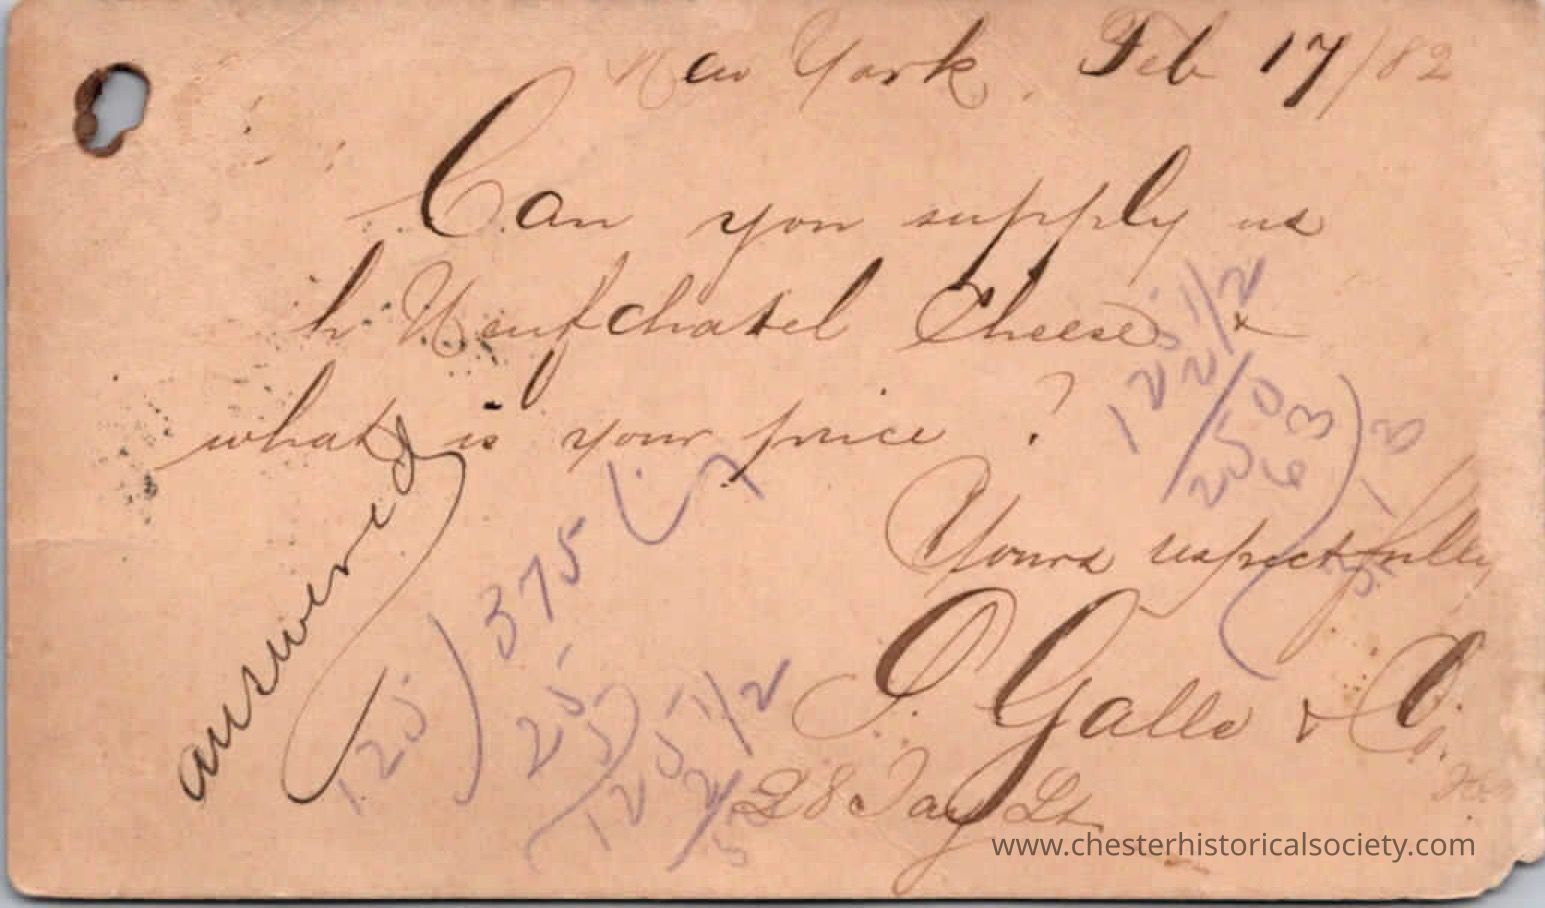 New York, Feb 17/82
Can you supply us
h Neufchatel Cheese &
what is your price ?
Yours respectfully
Galle & Co.
28 Jay St
answered
125 1/2
250
63
313
125) 375 (
25
125 1/2
www.chesterhistoricalsociety.com